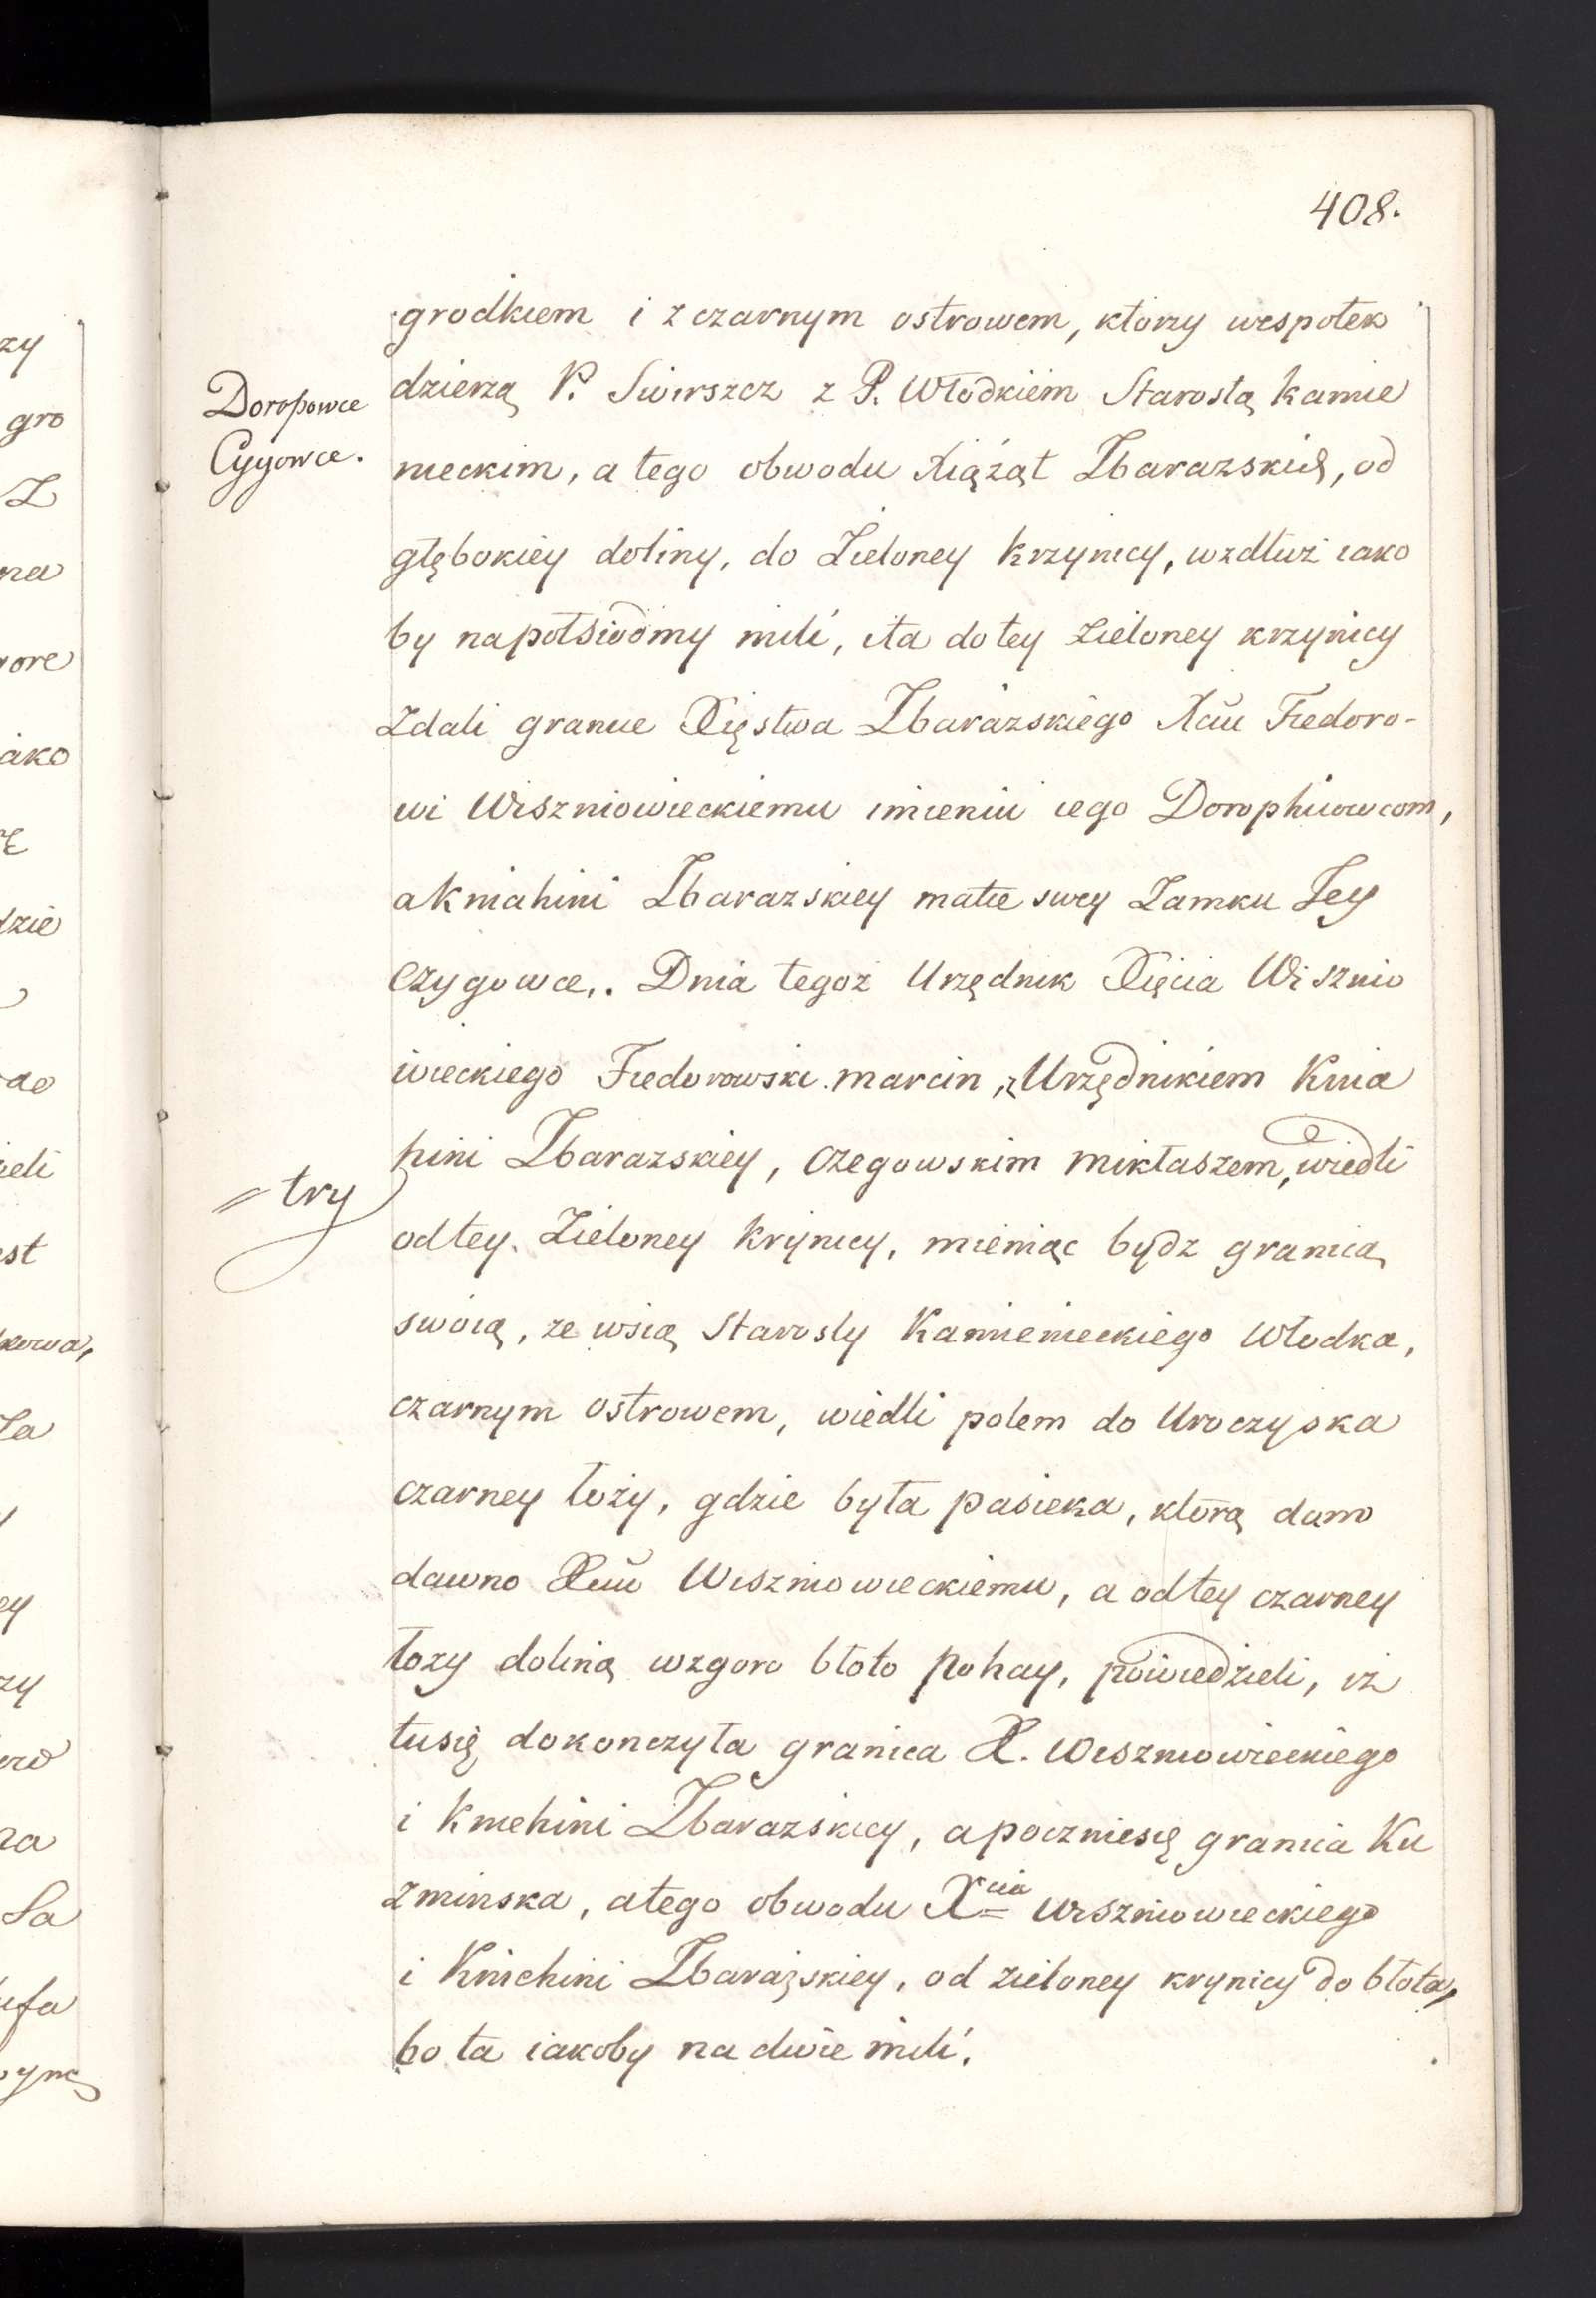 408.
grodkiem i z czarnym ostrowem, ktorzy wespołek
Doropowce
dzierzą P. Swirszcz z P. Włodkiem Starostą Kamie
Cygowce.
nieckim, a tego obwodu Xiąźąt Zbarazskich, od
głębokiey doliny, do Zieloney Krzynicy, wzdłuż iako
by napołsiodmy mili, ita do tey zieloney krzynicy
Zdali granice Xięstwa Zbarazskiego Xciu Fiedoro-
wi Wiszniowieckiemu imieniu iego Dorophiiowcom,
a Kniahini Zbarazskiey matce swey Zamku Jey
Czygowce,. Dnia tegoż Urzędnik Xięcia Wisznio
wieckiego Fiedorowski marcin, z Urzędnikiem Knia
hini Zbarazskiey, Czegowskim Mikłaszem, wiedli
= try
od tey Zieloney Krynicy, mieniąc bydz granicą
swoią, ze wsią Starosty Kamienieckiego Włodka,
czarnym ostrowem, wiedli polem do Uroczyska
czarney łoży, gdzie była pasieka, ktorą dano
dawno Xciu Wiszniowieckiemu, a od tey czarney
łozy doliną wzgoro błoto Pohay, powiedzieli, iż
tusię dokonczyła granica X. Wiszniowieckiego
i Kniehini Zbarazskiey, a poczniesię granica Ku
zminska, a tego obwodu Xcia Wiszniowieckiego
i Kniehini Zbarażskiey, od zieloney krynicy do błota,
bo ta iakoby na dwie mili.